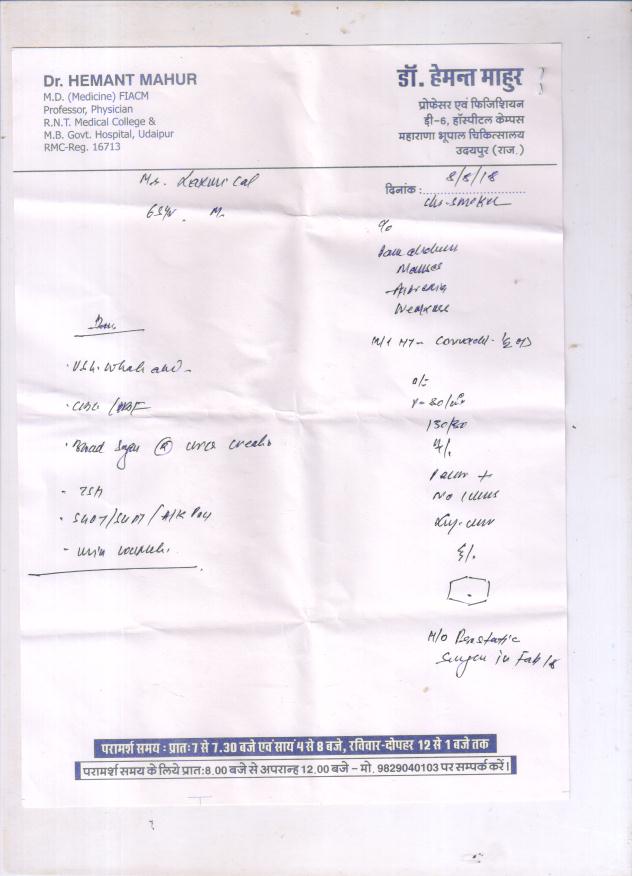 Dr. HEMANT MAHUR
M.D. (Medicine) FIACM
Professor, Physician
R.N.T. Medical College &
M.B. Govt. Hospital, Udaipur
RMC-Reg. 16713
डॉ. हेमन्त माहुर
प्रोफेसर एवं फिजिशियन
डी-6, हॉस्पीटल केम्पस
महाराणा भूपाल चिकित्सालय
उदयपुर (राज.)
Mr. Laxmi Lal
65Yr. M.
दिनांक : 8/8/18
smoker
c/o
Nausea
Weakness
M/H HT-
O/E
130/80
Pallor +
No icterus
H/O Prostatic
Surgery in Feb/18
Inv.
. USG. Whole abd -
. CBC /PBF
. Blood Sugar (R) urea creatin
- TSH
. SGOT/SGPT/Alk Po4
- Urin complete.
परामर्श समय : प्रातः 7 से 7.30 बजे एवं सायं 4 से 8 बजे, रविवार-दोपहर 12 से 1 बजे तक
परामर्श समय के लिये प्रातः 8.00 बजे से अपरान्ह 12.00 बजे - मो. 9829040103 पर सम्पर्क करें।